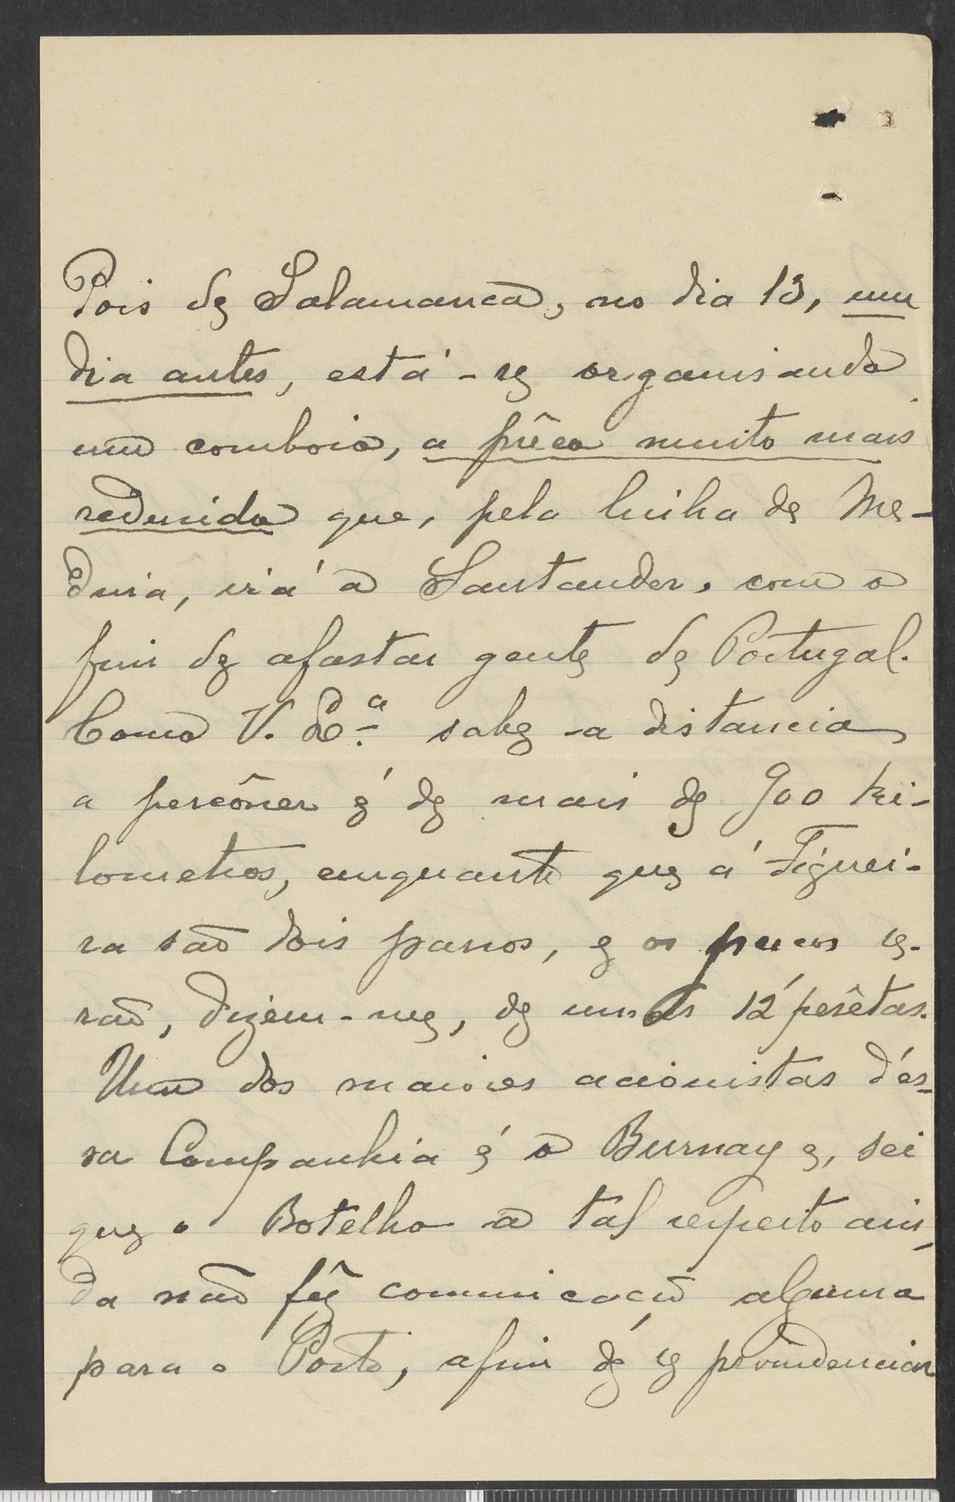 Pois de Salamanca, no dia 13, um
dia antes, está-se organisando
um comboio, a prêço muito mais
redusido que, pela linha de Me-
dina, irá a Santander, com o
fim de afastar gente de Portugal.
Como V. Ex.ª sabe a distancia
a percôrrer é de mais de 900 ki-
lometros, emquanto que á Figuei-
ra são dois passos, e os preços se-
rão, dizem-me, de umas 12 pesêtas.
Um dos maiores acionistas d'és-
sa Companhia é o Burnay e, sei
que o Botelho a tal respeito ain-
da não fêz communicação alguma
para o Porto, afim de se providenciar